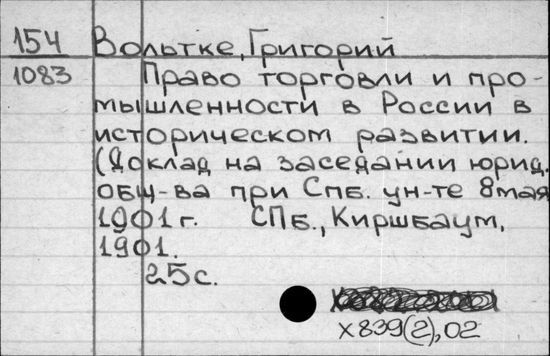 154 Вольтке, Григорий
1083 Право торговли и про-
мышленности в России в
историческом развитии.
(Доклад на заседании юрид.
общ-ва при Спб. ун-те 8 мая
1901 г. СПб., Киршбаум,
1901.
25 с.
x839(2),02